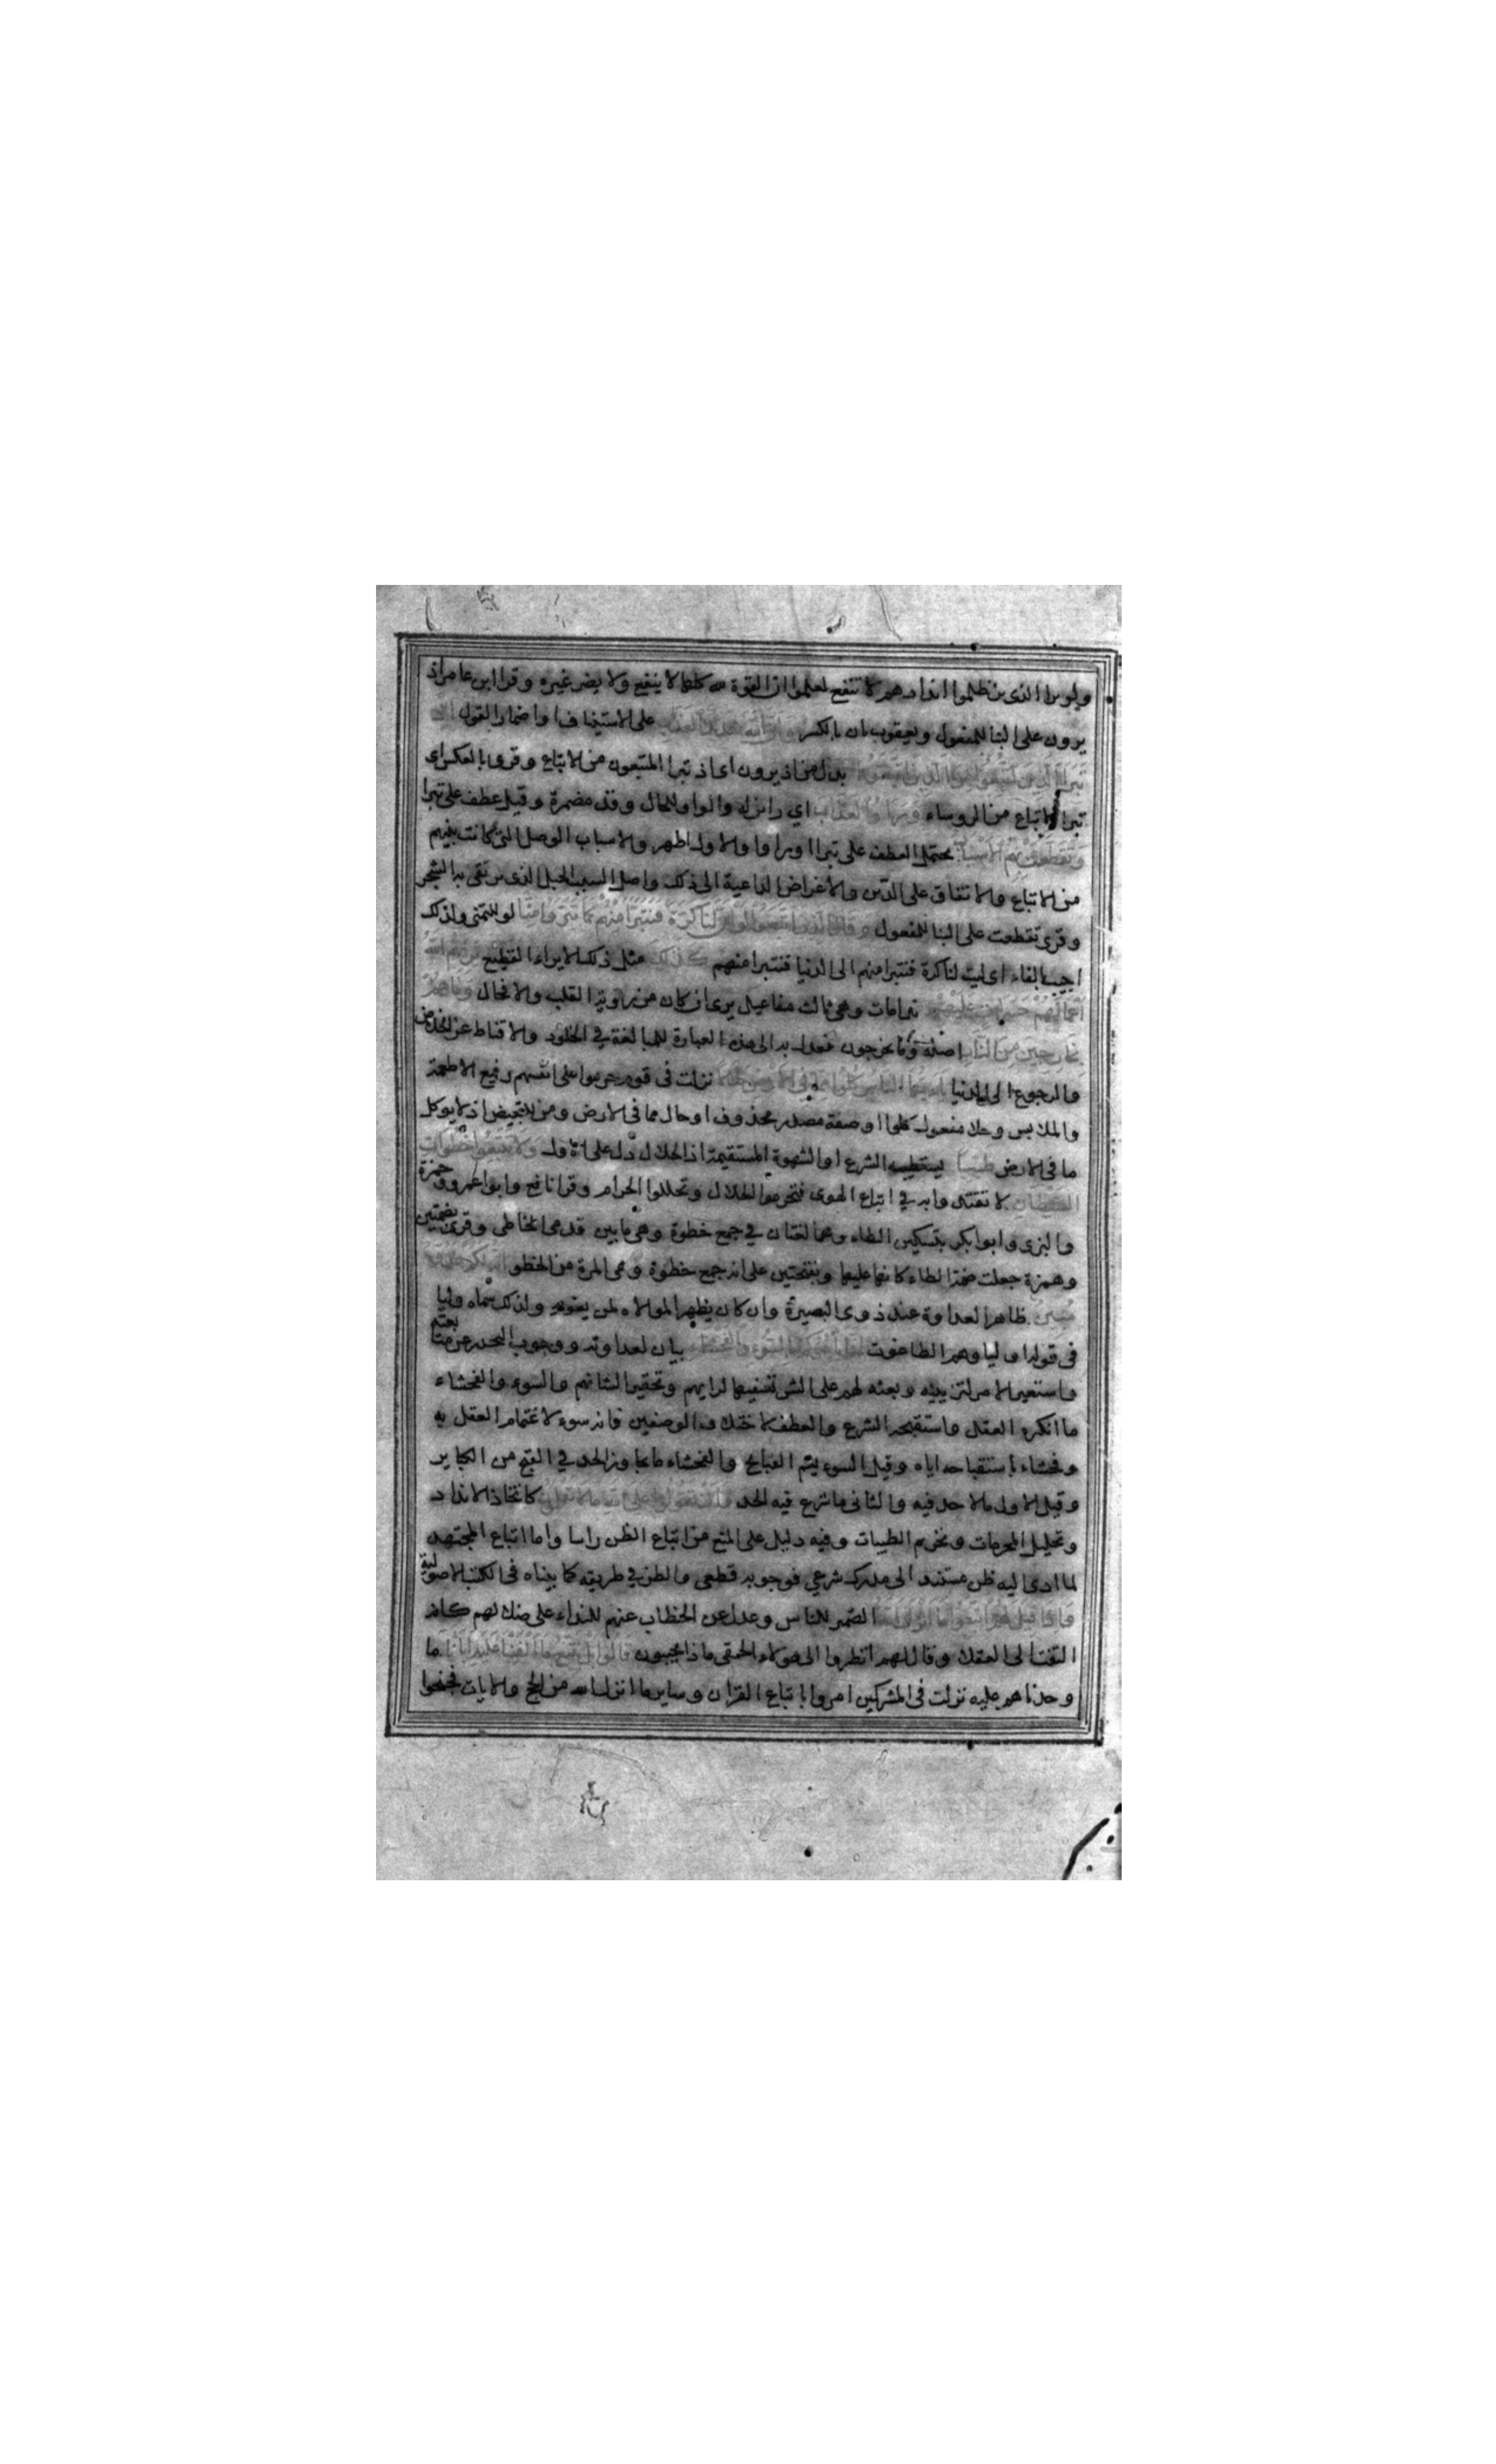 ولو يرا الذين ظلموا اندادهم لا تنفع لعلموا ان القوة لله كلها لا ينفع ولا يضر غيره وقرا ابن عامر اذ
يرون على البنا للمفعول ويعقوب ان بالكسر وان الله شديد العذاب على الاستيناف او اضمار القول اذ
تبرا الذين اتبعوا من الذين اتبعوا بدل من اذ يرون اى اذ تبرا المتبعون من الاتباع وقرى بالعكس اى
تبرا الاتباع من الروساء وراوا العذاب اي رائين له والواو للحال وقد مضمرة وقيل عطف على تبرا
وتقطعت بهم الاسباب يحتمل العطف على تبرا او راوا والاول اظهر والاسباب الوصل التى كانت بينهم
من الاتباع والاتفاق على الدين والاغراض الداعية الى ذلك واصل السبب الحبل الذى يرتقى به الشجر
وقرى تقطعت على البنا للمفعول وقال الذين اتبعوا لو ان لنا كرة فنتبرا منهم كما تبرؤا منا لو للتمنى ولذلك
اجيب بالفاء اى ليت لنا كرة فنتبرا منهم الى الدنيا فنتبرا منهم كذلك مثل ذلك الايراء الفظيع يريهم الله
اعمالهم حسرات عليهم ندامات وهى ثالث مفاعيل يرى ان كان من رؤية القلب والا فحال وما هم
بخارجين من النار اصله وما يخرجون فعدل به الى هذه العبارة للمبالغة في الخلود والاقناط عن الخلاص
والرجوع الى الدنيا يا ايها الناس كلوا مما فى الارض حلالا نزلت فى قوم حرموا على انفسهم رفيع الاطعمة
والملابس وحلا مفعول كلوا او صفة مصدر محذوف او حال مما فى الارض ومن للتبعيض اذ لا يوكل
ما فى الارض طيبا يستطيبه الشرع او الشهوة المستقيمة اذ الحلال دل على الاول ولا تتبعوا خطوات
الشيطان لا تقتدوا به في اتباع الهوى فتحرموا الحلال وتحللوا الحرام وقرا نافع وابو عمرو وحمزة
والبزى وابو بكر بتسكين الطاء وهما لغتان في جمع خطوة وهى ما بين قدمى الخاطى وقرى بضمتين
وهمزة جعلت ضمة الطاء كانها عليها وبفتحتين على انه جمع خطوة وهى المرة من الخطو انه لكم عدو
مبين ظاهر العداوة عند ذوى البصيرة وان كان يظهر الموالاه لمن يغويه ولذلك سماه وليا
فى قوله اوليا وهم الطاغوت انما يامركم بالسوء والفحشاء بيان لعداوته ووجوب التحرز عن متابعته
واستعير الامر لتزيينه وبعثه لهم على الشر تسفيها لرايهم وتحقيرا لشانهم والسوء والفحشاء
ما انكره العقل واستقبحه الشرع والعطف لاختلاف الوصفين فانه سوء لاغتمام العقل به
وفحشاء باستقباحه اياه وقيل السوء يعم القبايح والفحشاء ما تجاوز الحد في القبح من الكباير
وقيل الاول ما لا حد فيه والثانى ما شرع فيه الحد وان تقولوا على الله ما لا تعلمون كاتخاذ الانداد
وتحليل المحرمات وتحريم الطيبات وفيه دليل على المنع من اتباع الظن راسا واما اتباع المجتهد
لما ادى اليه ظن مستند الى مدرك شرعي فوجوبه قطعى والظن في طريقه كما بيناه فى الكتب الاصولية
واذا قيل لهم اتبعوا ما انزل الله الضمير للناس وعدل عن الخطاب عنهم للنداء على ضلالهم كانه
التفت الى العقلا وقال لهم انظروا الى هولاء الحمقى ماذا يجيبون قالوا بل نتبع ما الفينا عليه ابانا ما
وجدناهم عليه نزلت فى المشركين امروا باتباع القران وساير ما انزل الله من الحجج والايات فجنحوا